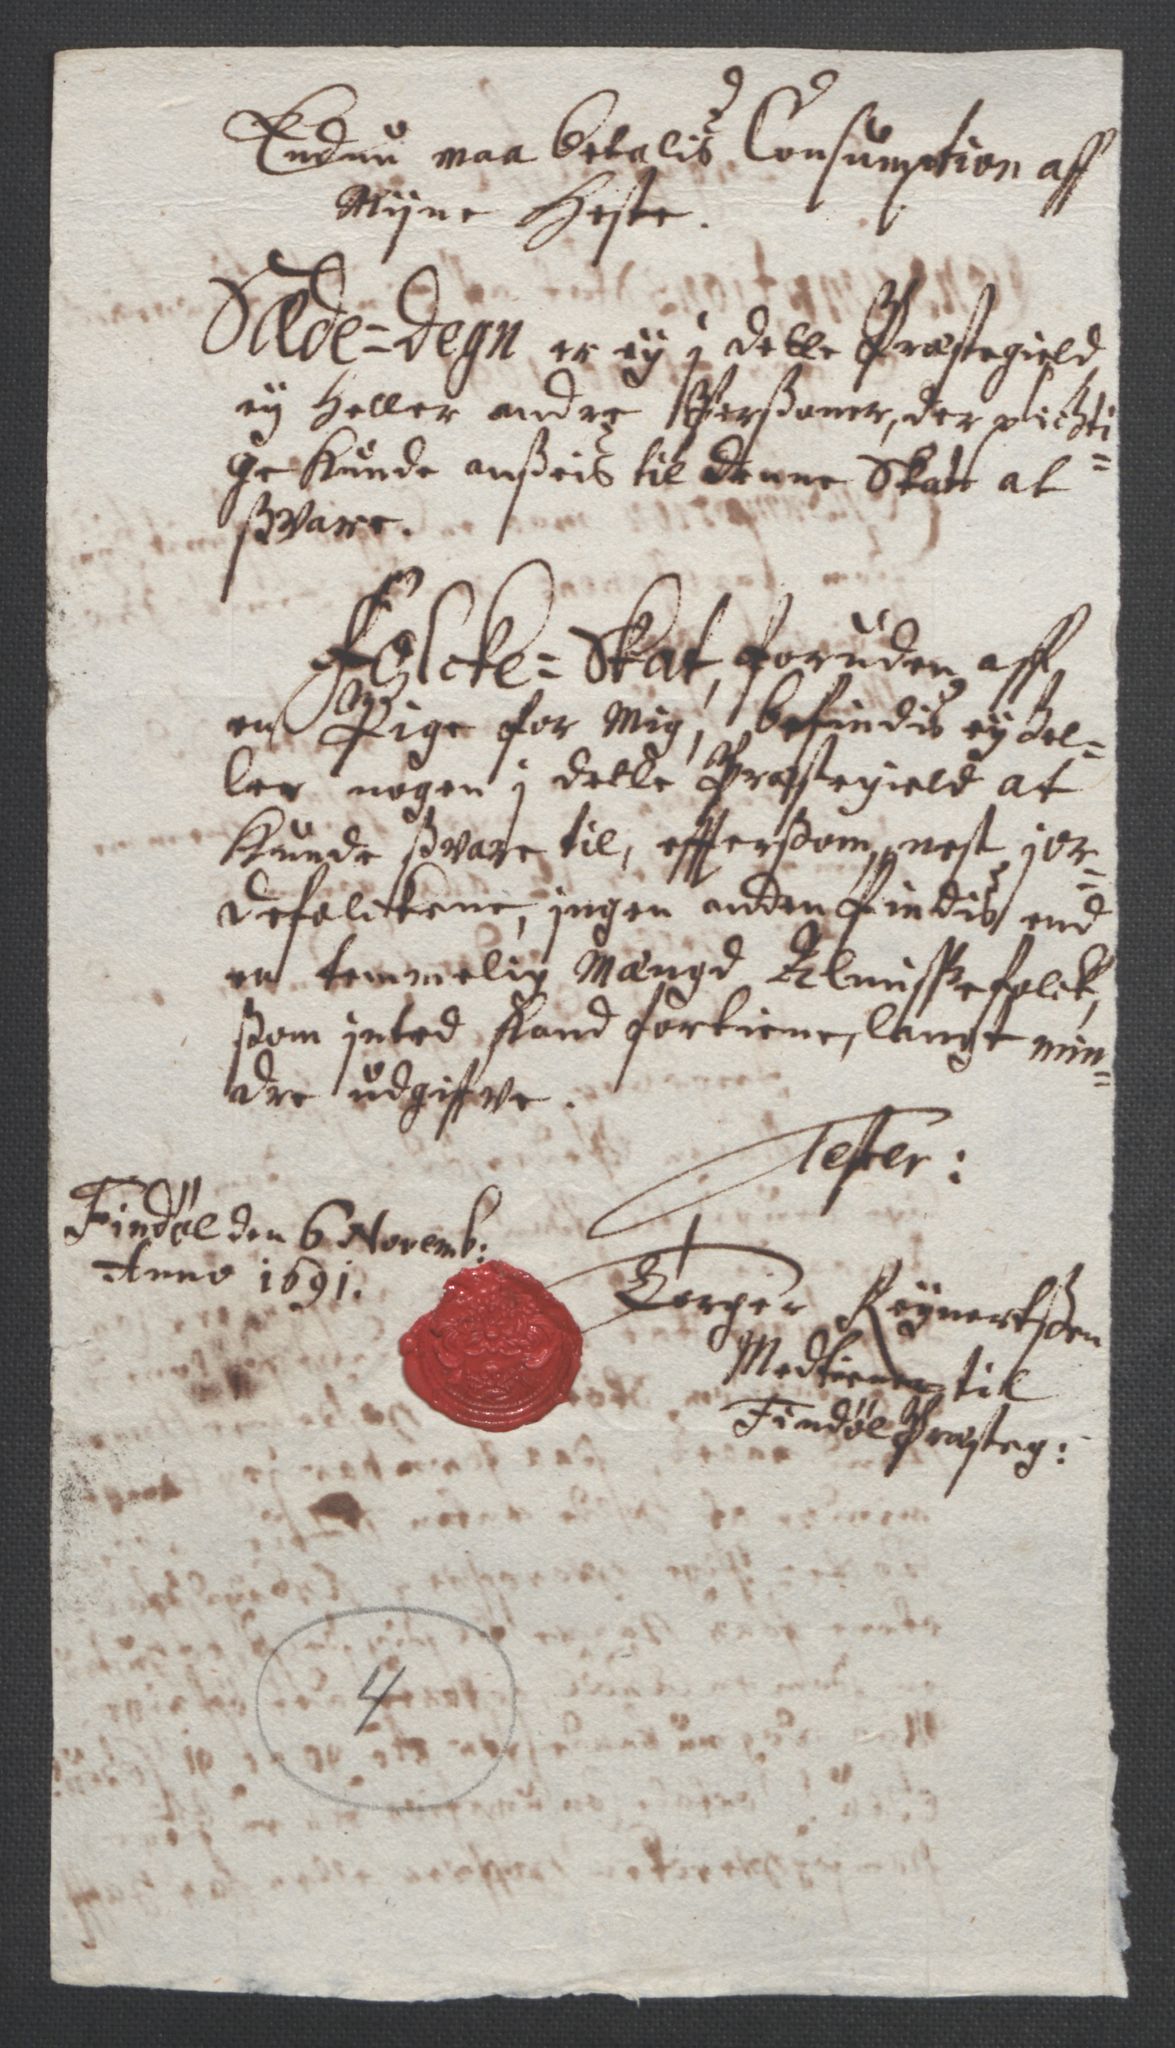 Endnu maa betalis Consumption aff
Mijne Heste.
Sæde-degn er ej j dette Præstegield
ej heller andre Perßoner, der plichti=
ge kunde anßeis til denne Skatt at
ßvare.
Folcke-Skat, foruden aff
en Pige for Mig, befindis ej hel=
ler nogen j dette Præstegield at
kunde ßvare til, effterßom, nest jor=
defolckene, jngen anden findis end
en temmelig Mængd Almißefolck,
ßom jnted kand fortiene, langt min=
dre udgiffve.
Tester:
Findøl den 6 Novemb:
Anno 1691.
Torger Reÿnertßen
Medtiener til
Findøl Præsteg:
4